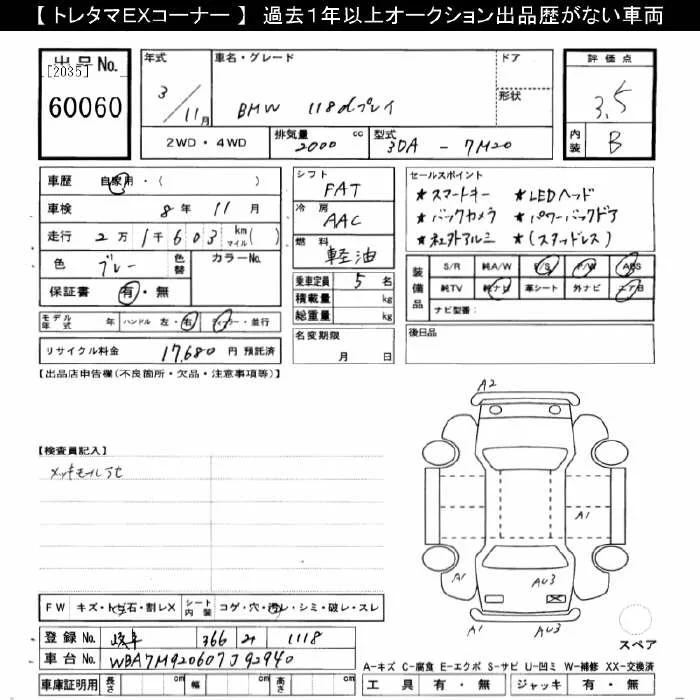 【 トレタマEXコーナー 】 過去1年以上オークション出品歴がない車両
出品No.
[2035]
60060
年式
3/11月
車名・グレード
BMW 118d プレイ
ドア
形状
評価点
3.5
内装
B
2WD・4WD
排気量 2000 cc
型式 3DA - 7M20
車歴 自家用・( )
車検 8年 11月
走行 2万 1千 603 km マイル( )
色 ブレー
色替
カラーNo.
保証書 有・無
モデル年式 年 ハンドル 左・右 ディーラー・並行
リサイクル料金 17,680 円 預託済
シフト FAT
冷房 AAC
燃料 軽油
乗車定員 5 名
積載量 kg
総重量 kg
名変期限
月 日
セールスポイント
★スマートキー ★LEDヘッド
★バックカメラ ★パワーバックドア
★社外アルミ ★(スタッドレス)
装備品
S/R 純A/W P/S P/W ABS
純TV 純ナビ 革シート 外ナビ エアB
ナビ型番:
後日品
【出品店申告欄(不良箇所・欠品・注意事項等)】
【検査員記入】
A2
A1
A1
AU3
A1
AU3
スペア
FW キズ・トビ石・割レX シート内装 コゲ・穴・汚レ・シミ・破レ・スレ
登録No. 岐阜 366 1118
車台No. WBA7M920607J92940
車庫証明用 長さ cm 幅 cm 高さ cm
A-キズ C-腐食 E-エクボ S-サビ U-凹ミ W-補修 XX-交換済
工具 有・無 ジャッキ 有・無